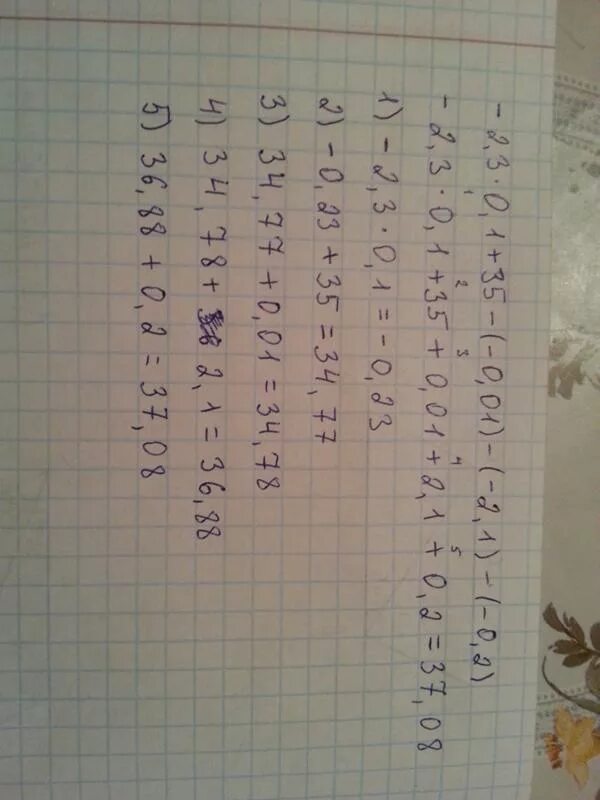 - 2,3 · 0,1 + 35 - (-0,01) - (-2,1) - (-0,2)
1 2 3 4 5
- 2,3 · 0,1 + 35 + 0,01 + 2,1 + 0,2 = 37,08
1) - 2,3 · 0,1 = -0,23
2) - 0,23 + 35 = 34,77
3) 34,77 + 0,01 = 34,78
4) 34,78 + 2,1 = 36,88
5) 36,88 + 0,2 = 37,08